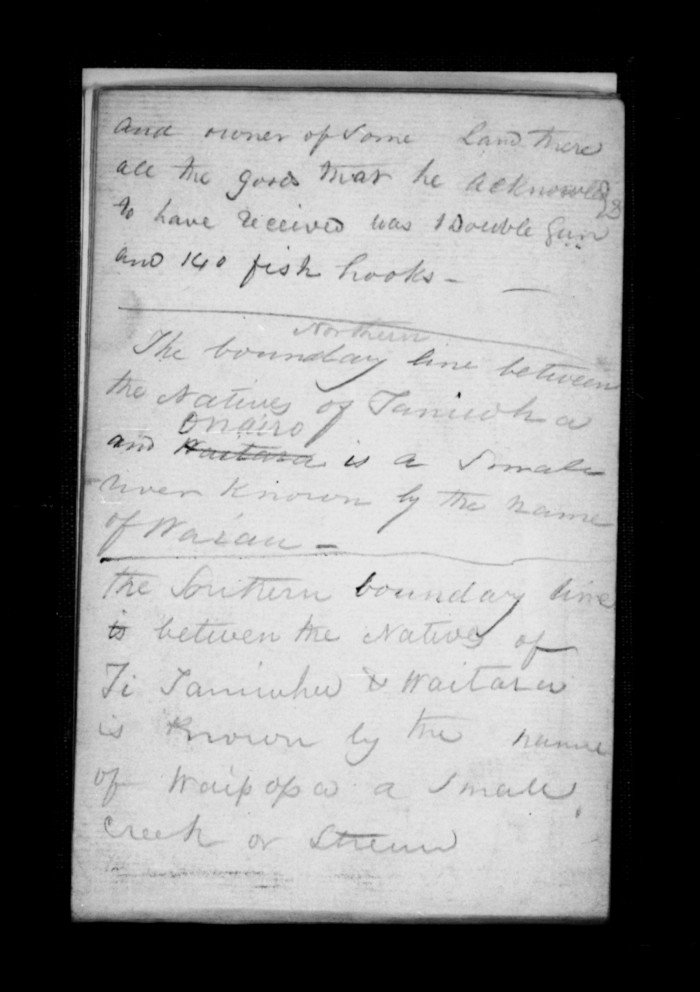 and owner of Some Land there
all the goods that he acknowledged
to have received was 1 Double Gun
and 140 fish hooks -
Northern
The boundary line between
the Natives of Taniwha
Onairo
and Waitara is a Small
river Known by the name
of Waiau -
the Southern boundary line
is between the Natives of
Ti Taniwha & Waitara
is Known by the name
of Waipapa a Small
Creek or Stream